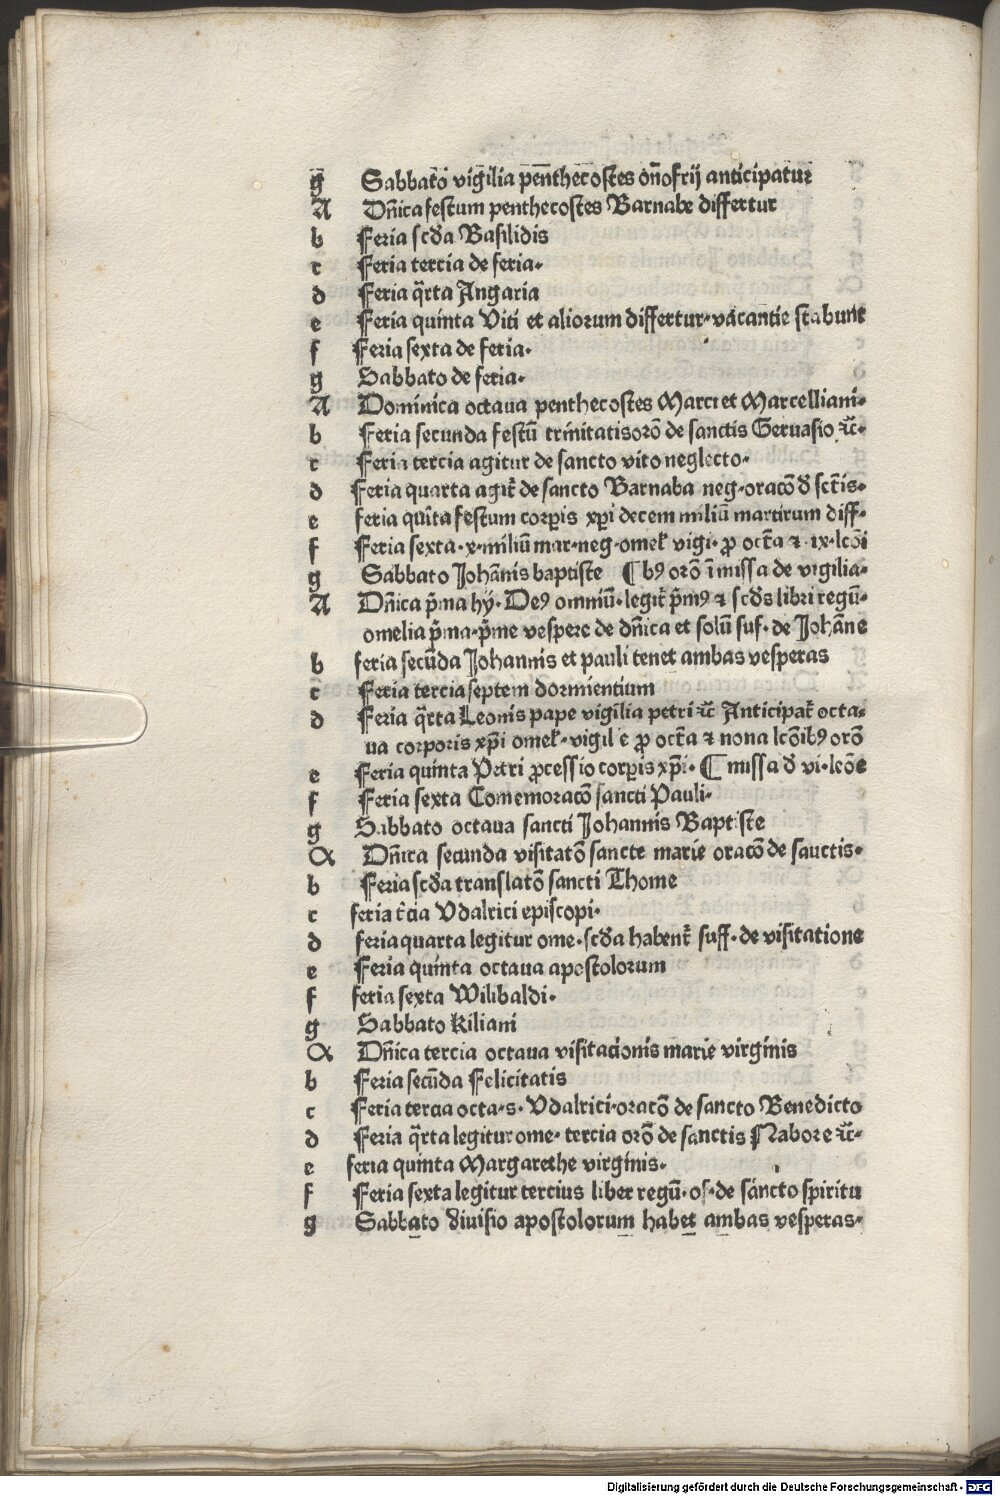 g Sabbato vigilia penthecostes ōnofrij anticipatur
A Dn̄ica festum penthecostes Barnabe differtur
b Feria scd̄a Basilidis
c Feria tercia de feria.
d Feria q̄rta Angaria
e Feria quinta Viti et aliorum differtur. vacantie stabunt
f Feria sexta de feria.
g Sabbato de feria.
A Dominica octaua penthecostes Marci et Marcelliani.
b Feria secunda festū trinitatis orō de sanctis Geruasio ⁊c̄.
c Feria tercia agitur de sancto vito neglecto.
d Feria quarta agit᷑ de sancto Barnaba neg. oracō d̄ sct̄is.
e feria quīta festum corꝑis xp̄i decem miliū martirum diff.
f Feria sexta. x. miliū mar. neg. omel̄ vigi. ꝓ oct̄a ⁊ .ix. lcōi
g Sabbato Johānis baptiste ¶ bꝰ orō ī missa de vigilia.
A Dn̄ica p̄ma hȳ. Deꝰ omniū. legit᷑ p̄mꝰ ⁊ scd̄s libri regū.
omelia p̄ma. p̄me vespere de dn̄ica et solū suf. de Johāne
b feria secūda Johannis et pauli tenet ambas vesperas
c Feria tercia septem dormientium
d Feria q̄rta Leonis pape vigilia petri ⁊c̄ Anticipat᷑ octa-
ua corporis xp̄i omel̄. vigilie ꝓ oct̄a ⁊ nona lcōibꝰ orō
e Feria quinta Petri ꝓcessio corꝑis xp̄i. ¶ missa d̄ vi. leōe
f Feria sexta Comemoracō sancti Pauli.
g Sabbato octaua sancti Johannis Baptiste
A Dn̄ica secunda visitatō sancte marie oracō de sanctis.
b Feria scd̄a translatō sancti Thome
c feria t̄cia Vdalrici episcopi.
d feria quarta legitur ome. scd̄a habent᷑ suff. de visitatione
e Feria quinta octaua apostolorum
f feria sexta Wilibaldi.
g Sabbato Kiliani
A Dn̄ica tercia octaua visitacionis marie virginis
b Feria secūda Felicitatis
c Feria tercia octa. s. Vdalrici. oracō de sancto Benedicto
d Feria q̄rta legitur ome. tercia orō de sanctis Nabore ⁊c̄.
e feria quinta Margarethe virginis.
f Feria sexta legitur tercius liber regū. os. de sancto spiritu
g Sabbato diuisio apostolorum habet ambas vesperas.
Digitalisierung gefördert durch die Deutsche Forschungsgemeinschaft - DFG